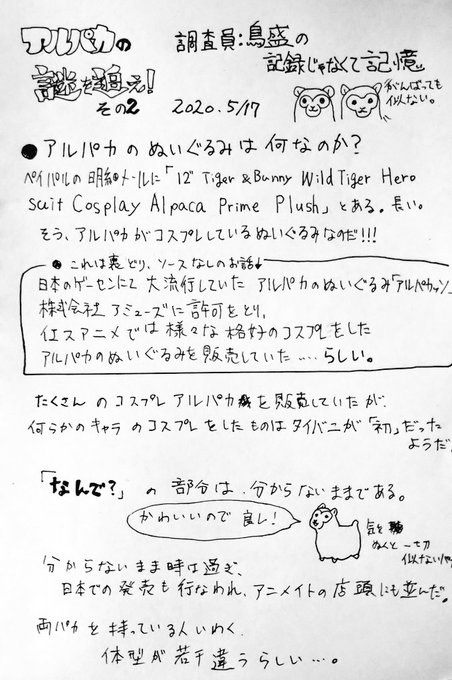 アルパカの
謎を追え!
その2
調査員:鳥盛の
記録じゃなくて記憶
2020.5/17
がんばっても
似ない。
● アルパカのぬいぐるみは何なのか?
ペイパルの明細メールに「12" Tiger & Bunny Wild Tiger Hero
suit Cosplay Alpaca Prime Plush」とある。長い。
そう、アルパカがコスプレしているぬいぐるみなのだ!!!
● これは裏どり、ソースなしのお話↓
日本のゲーセンにて大流行していたアルパカのぬいぐるみ「アルパカッソ」
株式会社アミューズに許可をとり、
仏アニメでは様々な格好のコスプレをした
アルパカのぬいぐるみを販売していた....らしい。
たくさんのコスプレアルパカを販売していたが、
何らかのキャラのコスプレをしたものはタイバニが「初」だった
ようだ。
「なんで?」の部分は、分からないままである。
かわいいので良し!
気を
ぬくと一切
似ない
分からないまま時は過ぎ、
日本での発売も行なわれ、アニメイトの店頭にも並んだ。
両パカを持っている人いわく、
体型が若干違うらしい…。